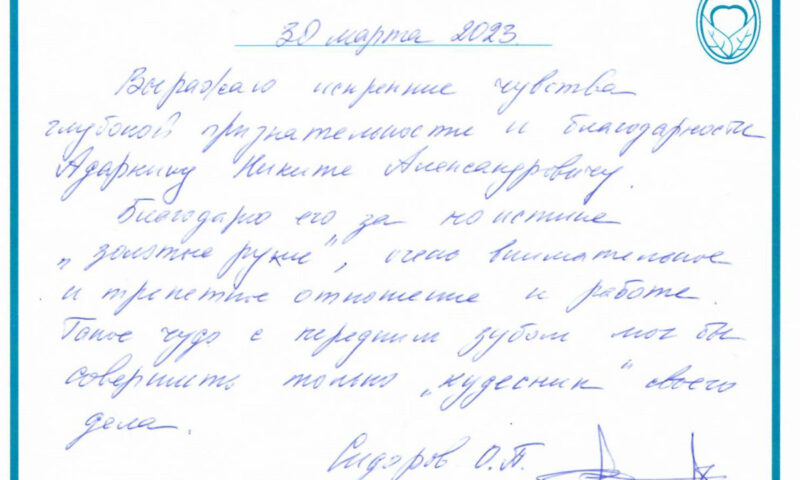 30 марта 2023.
Выражаю искренние чувства
глубокой признательности и благодарности
Адаркину Никите Александровичу.
Благодарю его за поистине
"золотые руки", очень внимательное
и трепетное отношение к работе.
Такое чудо с передним зубом мог бы
совершить только "кудесник" своего
дела.
Сидоров О.П.